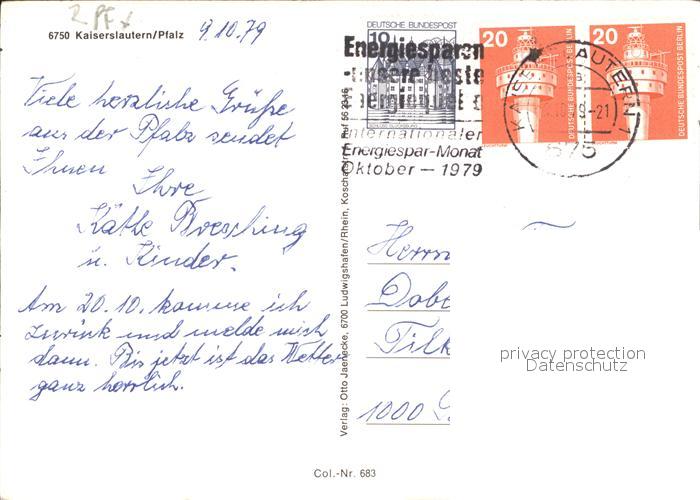 2 PF x
6750 Kaiserslautern/Pfalz
9.10.79
Viele herzliche Grüße
aus der Pfalz sendet
Ihnen
Ihre
Käthe Bresching
u. Kinder.
Am 20.10. komme ich
zurück und melde mich
dann. Bis jetzt ist das Wetter
ganz herrlich.
Verlag: Otto Jaenecke, 6700 Ludwigshafen/Rhein,
DEUTSCHE BUNDESPOST
10
20
DEUTSCHE BUNDESPOST BERLIN
20
DEUTSCHE BUNDESPOST BERLIN
Energiesparen
unsere beste
Energiequelle
Internationaler
Energiespar-Monat
Oktober – 1979
KAISERSLAUTERN 1
-21
675
Herrn
Dobe
Tilk
1000
privacy protection
Datenschutz
Col.-Nr. 683